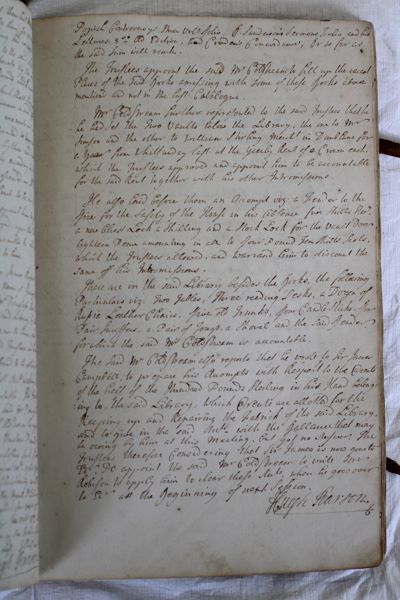 Popish Controversy Three Voll folio, B. Sandersons Sermons folio, and his
Lectures 8vo and Crudens Concordance, Or so far as
the said Sum will reach.
The Trustees appoint the said Mr Coldstream to fill up the several
Places of the said Books missing with some of these Books above
mentioned and not in the last Catalogue.
Mr Coldstream further represented to the said Trustees that he
had Set the Two Vaults below the Library, the one to Mr
and the other to William Stirling Mercht in Dunblane for
a year from Whitsunday last at the yearly Rent of a Crown each.
which the Trustees approved and appoint him to be accountable
for the said Rent together with his other Intromissions.
He also laid before them an Accompt viz: a Fender to the
fire for the Safety of the House in his absence five Shills
a new Chest Lock a Shilling and a Stock Lock for the Vault Door
Eighteen Pence amounting in all to four Pound Ten Shills Scots.
which the Trustees allowed, and warrand him to discount the
Same off his Intromissions.
There are in the said Library besides the Books, the following
Particulars viz. Two Tables, Three reading Desks, a Dozen of
Russia Leather Chairs, five Trunks, four Candlesticks, Two
Pair Snuffers, a Pair of Tongs, a Shovel and the said Fender
for which the said Mr Coldstream is accountable.
The said Mr Coldstream also reports that he wrote to Sir James
Campbell, to prepare his Accompts with Respect to the Rents
of the half of the Hundred Pounds Sterling in his Hand belong
ing to the said Library, which are allotted for the
Keeping up and Repairing the Fabrick of the said Library,
and to give in the said with the Ballance that may
be owing by him at this Meeting, but got no Answer. The
Trustees therefore Considering that Sir James is now gone to
Do appoint the said Mr Coldstream to write
to apply him to clear these when he goes over
to at the Beginning of next Session.
Hugh Pearson